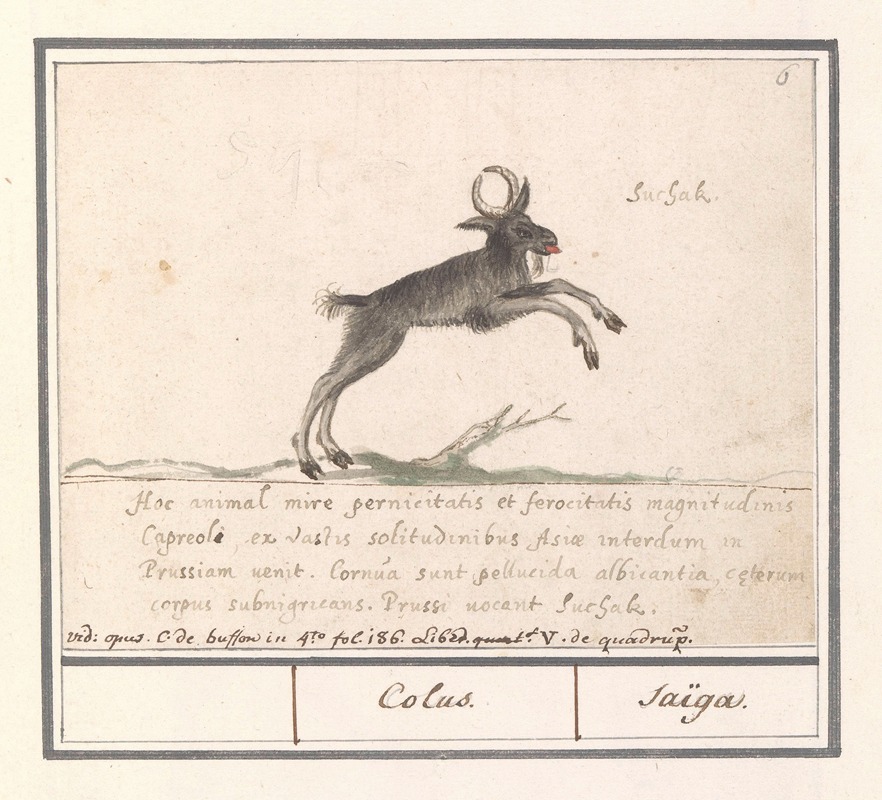 6
Suchak.
Hoc animal mire pernicitatis et ferocitatis magnitudinis
Capreoli, ex vastis solitudinibus Asiæ interdum in
Prussiam uenit. Cornua sunt pellucida albicantia, cęterum
corpus subnigricans. Prussi uocant Suchak.
vid: opus. C. de buffon in 4to fol. 186. Liber. V. de quadrup.
Colus.
Saïga.